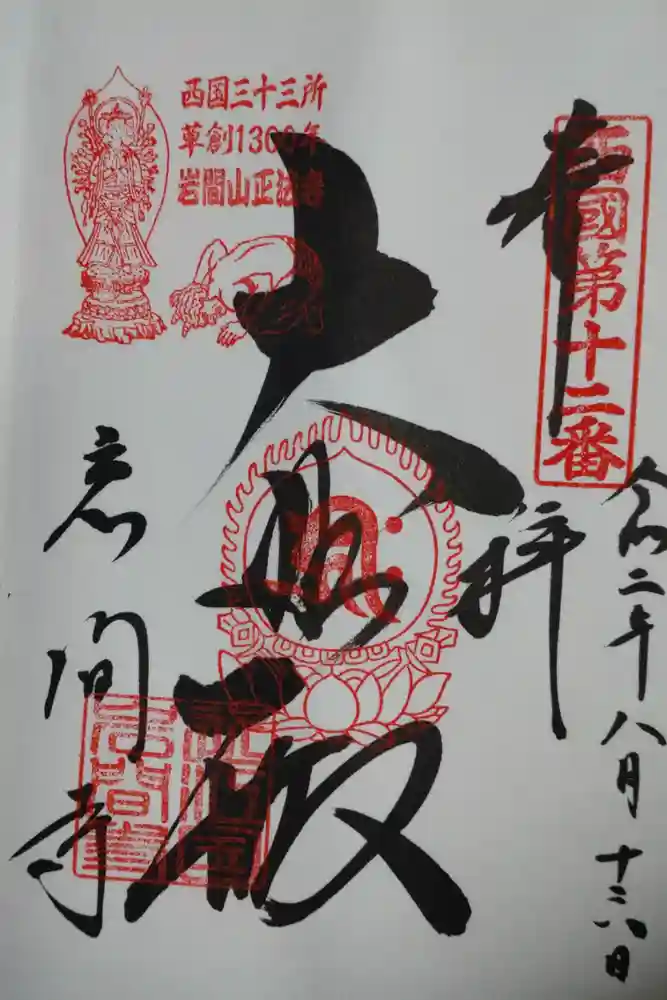 奉拝
西國第十二番
令和二年八月十六日
大悲殿
西国三十三所
草創1300年
岩間山正法寺
岩間寺